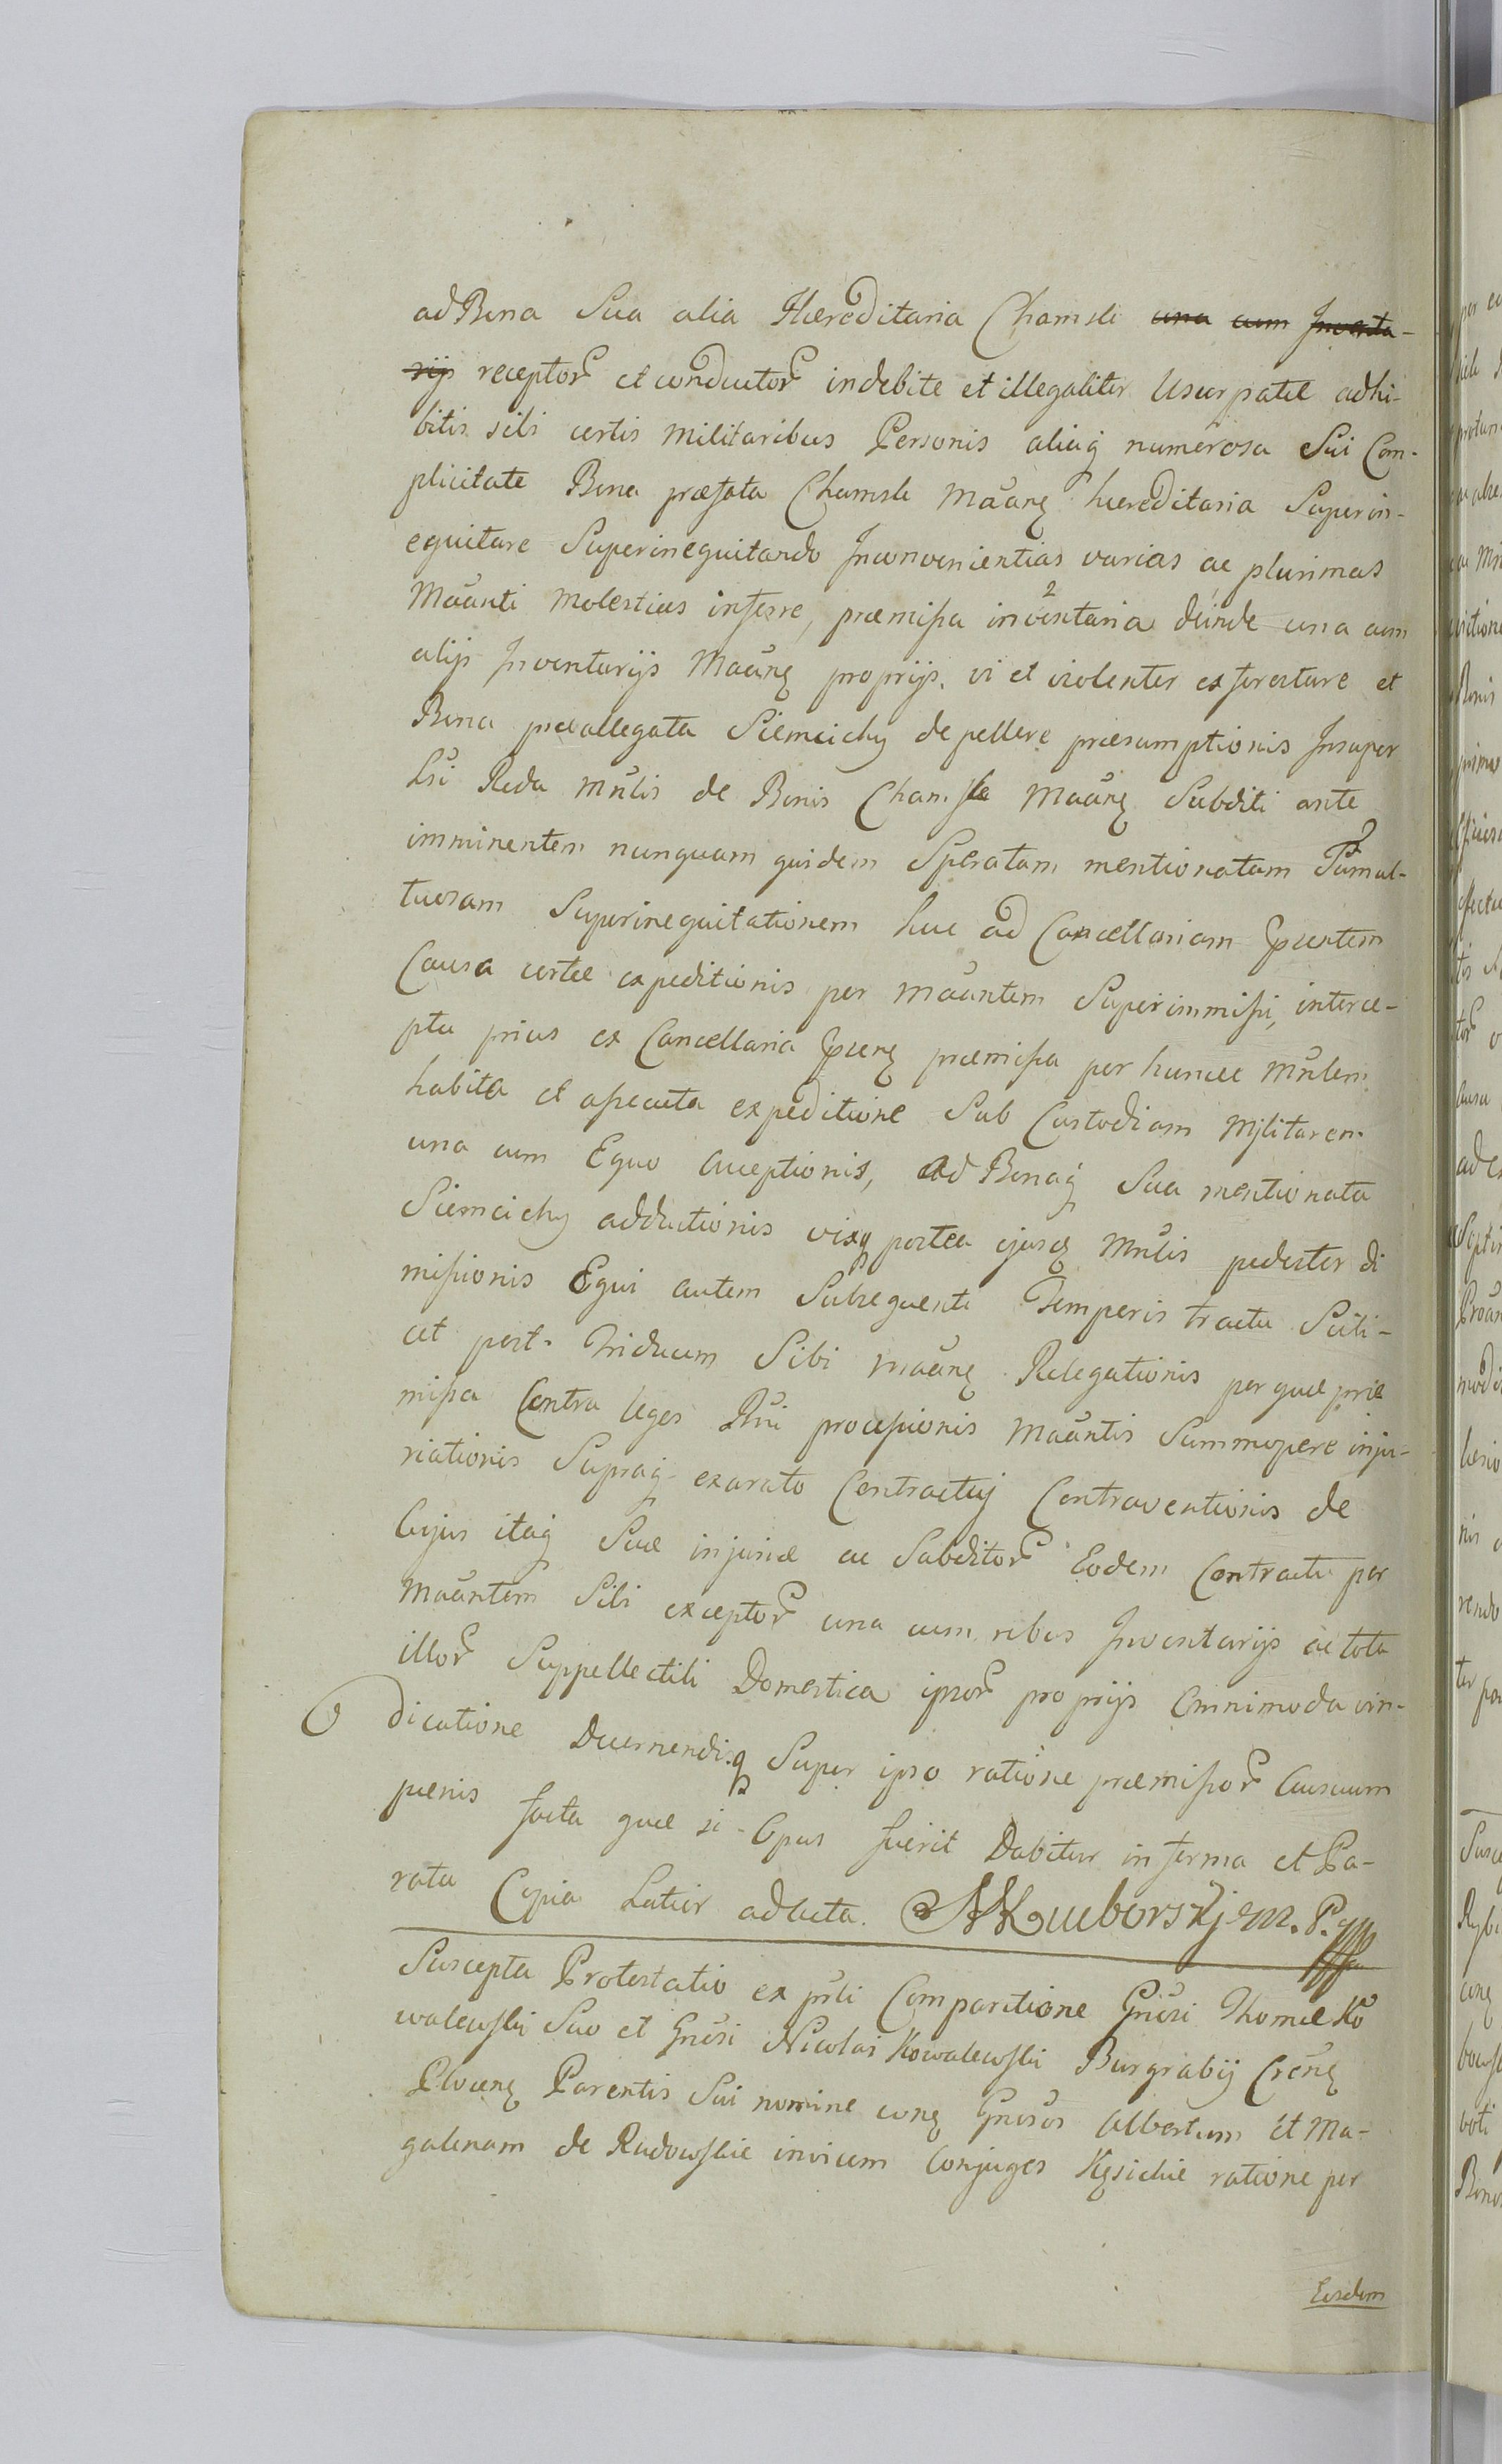 ad Bona Sua alia Hæreditaria Chamsk una cum Inventa-
rijs receptor et conductor indebite et illegaliter Usurpatæ adhi-
bitis sibi certis Militaribus Personis aliaq numerosa Sui Com-
plicitate Bona præfata Chamsk Mãang hæreditaria Superin-
equitare Superinequitando Inconvenientias varias ac plurimas
Mãanti Molestias inferre, præmissa inventaria deinde una cum
alijs Inventarijs Mãang proprijs, vi et violenter exforcitare et
Bona præallegata Siemcichy depellere præsumptionis Insuper
de Bonis Chamsk Mãang Subditi ante
imminentem nunquam quidem Speratam mentionatam Tumul-
tuosam Superinequitationem huc ad Cancellariam Psentem
Causa certæ expeditionis per Mãantem Superimmissi, interce-
pta prius ex Cancellaria præmissa per hunce Mulem
habita et assecuta expeditione Sub Custodiam Militarem
una cum Equo Acceptionis, Ad Bonaq Sua mentionata
Siemcichy adductionis vixq postea ejusd Mulis pedester di
missionis Equi autem Subsequenti Temporis tractu Scili-
cet post Triduum Sibi Mãang Relegationis per quæ præ
missa Contra leges Rni processionis Mãantis Summopere inju-
riationis Supraq exarato Contractuj Contraventionis de
Cujus itaq Suæ injuriæ ac Subditor Eodem Contractu per
Mãantem Sibi exceptor una cum rebus Inventarijs ac tota
illor Suppellectili Domestica ipsor proprijs Omnimoda vin-
dicatione Decernendisq Super ipso ratione præmissor Ausuum
pænis facta quæ si Opus fuerit Dabitur in forma et Pa-
rata Copia Latior ad acta. m. P.
Suscepta Protestatio ex psli Comparitione Gnosi Thomæ Ko
walewski Suo et Gnosi Nicolai Kowalewski Burgrabij
Parentis Sui nomine cong Gnosos Albertum et Ma-
galenam de Radowskie invicem Conjuges ratione per
Eosdem